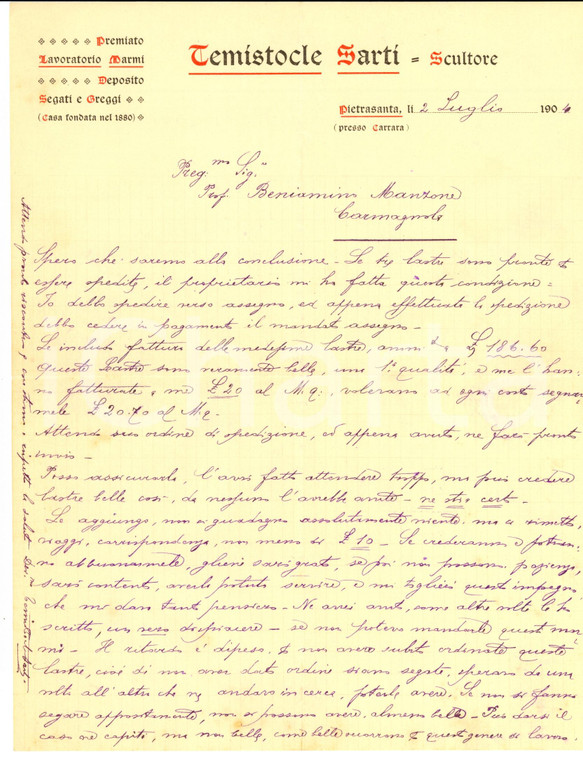 Premiato
Lavoratorio Marmi
Deposito
Segati e Greggi
(Casa fondata nel 1880)
Temistocle Sarti = Scultore
Pietrasanta, li 2 Luglio 1904
(presso Carrara)
Preg.mo Sig.
Prof. Beniamino Manzone
Carmagnola
Spero che saremo alla conclusione - Le tre lastre sono pronte
essere spedite, il proprietario mi ha fatta questa condizione =
Io debbo spedire verso assegno, ed appena effettuata la spedizione
debbo cedere in pagamento il mandato assegno -
Le includo fattura delle medesime lastre, £ 186.60
Queste lastre sono veramente belle, una 1a qualità, e me l'han-
no fatturate a me £ 20 al M.q., volevano ad ogni costo segnar-
mele £ 20.70 al M.q.
Attendo suo ordine di spedizione, ed appena avuto, ne farò pronto
invio -
Posso assicurarla, l'avrò fatto attendere troppo, ma può credere
lastre belle così, da nessuno l'avrebbe avute - ne stia certo -
Le aggiungo, non ci guadagno assolutamente niente, ma ci rimetto,
viaggi, corrispondenza, non meno di £ 10 - Se crederanno e potran-
no abbuonarmele, gliene sarò grato, se poi non possono, pazienza,
sarò contento, averlo potuto servire, e mi toglierò questo impegno,
che mi dava tanto pensiero - Ne avrei avuto, come altre volte le ho
scritto, un vero dispiacere - se non potevo mandarle questi mar-
mi - Il ritardo è dipeso, non avere subito ordinate queste
lastre, cioè di non aver dato ordine siano segate, speravo da una
volta all'altra che ne andavo in cerca, poterle avere. Se non si fanno
segare appositamente, non si possono avere, almeno belle - Può darsi il
caso che capiti, ma non belle, come belle occorrono questo genere di lavoro.
Attendo pronto riscontro, la saluto Dev. Temistocle Sarti